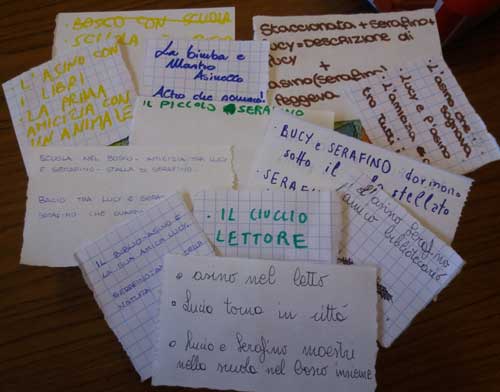 BOSCO CON SCUOLA
SCUOLA
L'ASINO CON
I LIBRI
LA PRIMA
AMICIZIA CON
UN ANIMALE
La bimba e
Mastro
Asinello
Altro che somaro!
IL PICCOLO SERAFINO
Staccionata + Serafino +
LUCY = DESCRIZIONE di
LUCY
+
asino (Serafino)
leggeva
L'asino che
sognava
Lucy e l'asino
L'amicizia
tra Luci
SCUOLA NEL BOSCO - AMICIZIA TRA LUCY
E SERAFINO - STALLA DI SERAFINO
BACIO TRA LUCY E
SERAFINO CHE
· BUCY e SERAFINO dormono
sotto il
stellato
· SERAFI
L'asino Serafino
amico bibliotecario
· IL CIUCCIO
LETTORE
IL BIBLIOASINO E
LA SUA AMICA LUCY
NATURA
asino nel letto
Lucia torna in città
Lucia e Serafino maestre
nella scuola nel bosco insieme